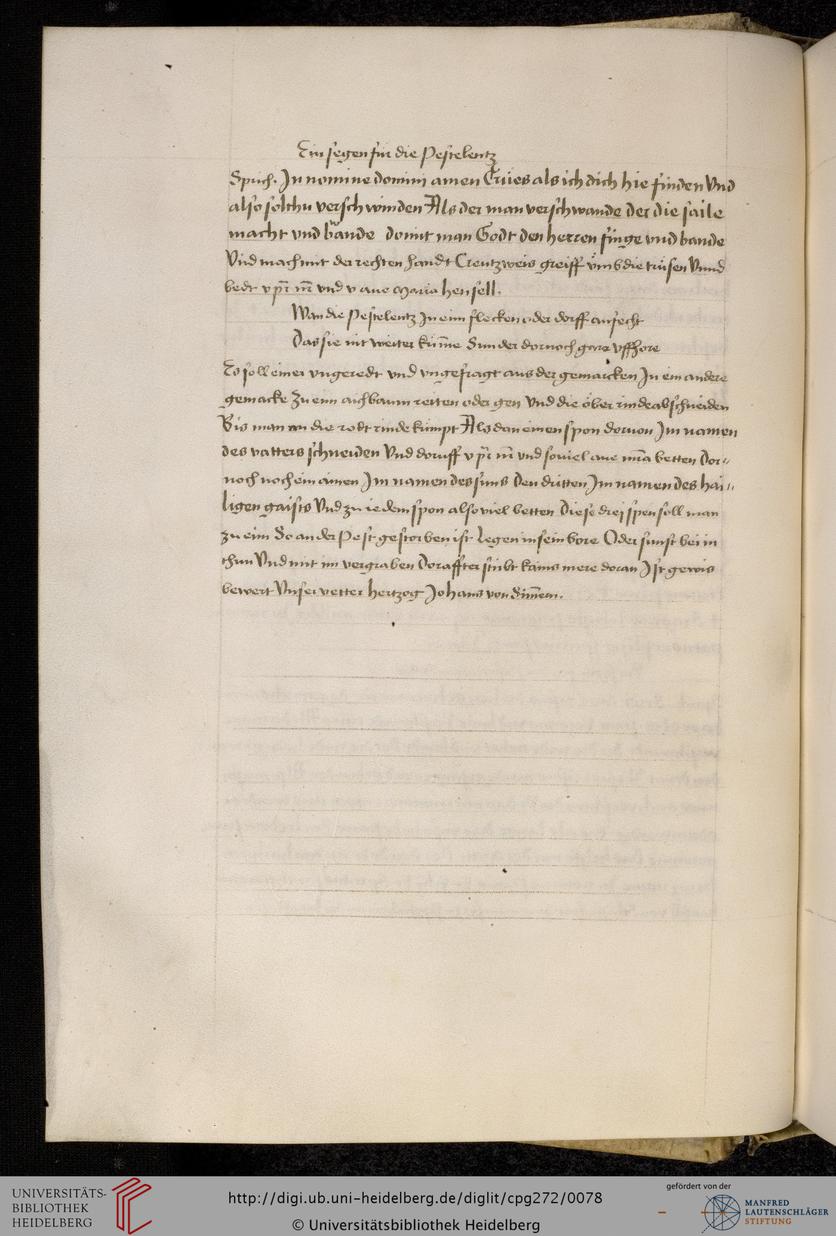 Ein segen fur die Pestelentz
Spruch. In nomine domini amen Trües als ich dich hie finden Vnd
also solthu verschwinden Als der man verschwande der die saile
macht vnd bande domit man Godt den herren finge vnd bande
Vnd mach mit der rechten handt Creutzweis greiff vmb die trüsen Vnnd
bedt v pr nr vnd v aue Maria hensell.
Wan die Pestelentz In eim flecken oder dorff anfecht
Das sie nit weiter kume Sunder dornoch gare vffhore
Es soll einer vngeredt vnd vngefragt aus der gemarcken In ein andere
gemarcke zu eim aichbaum reiten oder gen Vnd die ober rinde abschneiden
Bis man an die rodt rinde kumpt Als dan einen spon doruon Im namen
des vatters schneiden Vnd doruff v pr nr vnd souiel aue mria betten Dor„
noch noch ein ainen Im namen des suns Den dritten Im namen des hai„
ligen gaists Vnd zu iedem spon also viel betten Diese drei spen soll man
zu eim So an der Pest gestorben ist Legen in sein bore Oder sunst bei in
thun Vnd mit im vergraben Doraffter stirbt kains mere doran Ist gewis
bewert Vnser vetter hertzog Johans von Simern.
UNIVERSITÄTS-
BIBLIOTHEK
HEIDELBERG
http://digi.ub.uni-heidelberg.de/diglit/cpg272/0078
© Universitätsbibliothek Heidelberg
gefördert von der
MANFRED
LAUTENSCHLÄGER
STIFTUNG